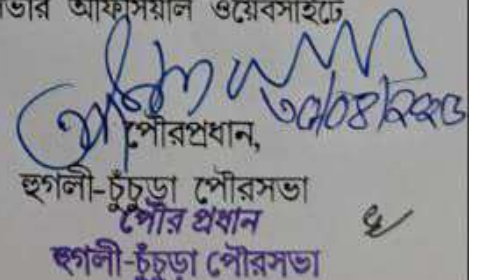 ভার অফিসিয়াল ওয়েবসাইটে
পৌরপ্রধান,
হুগলী-চুঁচুড়া পৌরসভা
পৌর প্রধান
হুগলী-চুঁচুড়া পৌরসভা